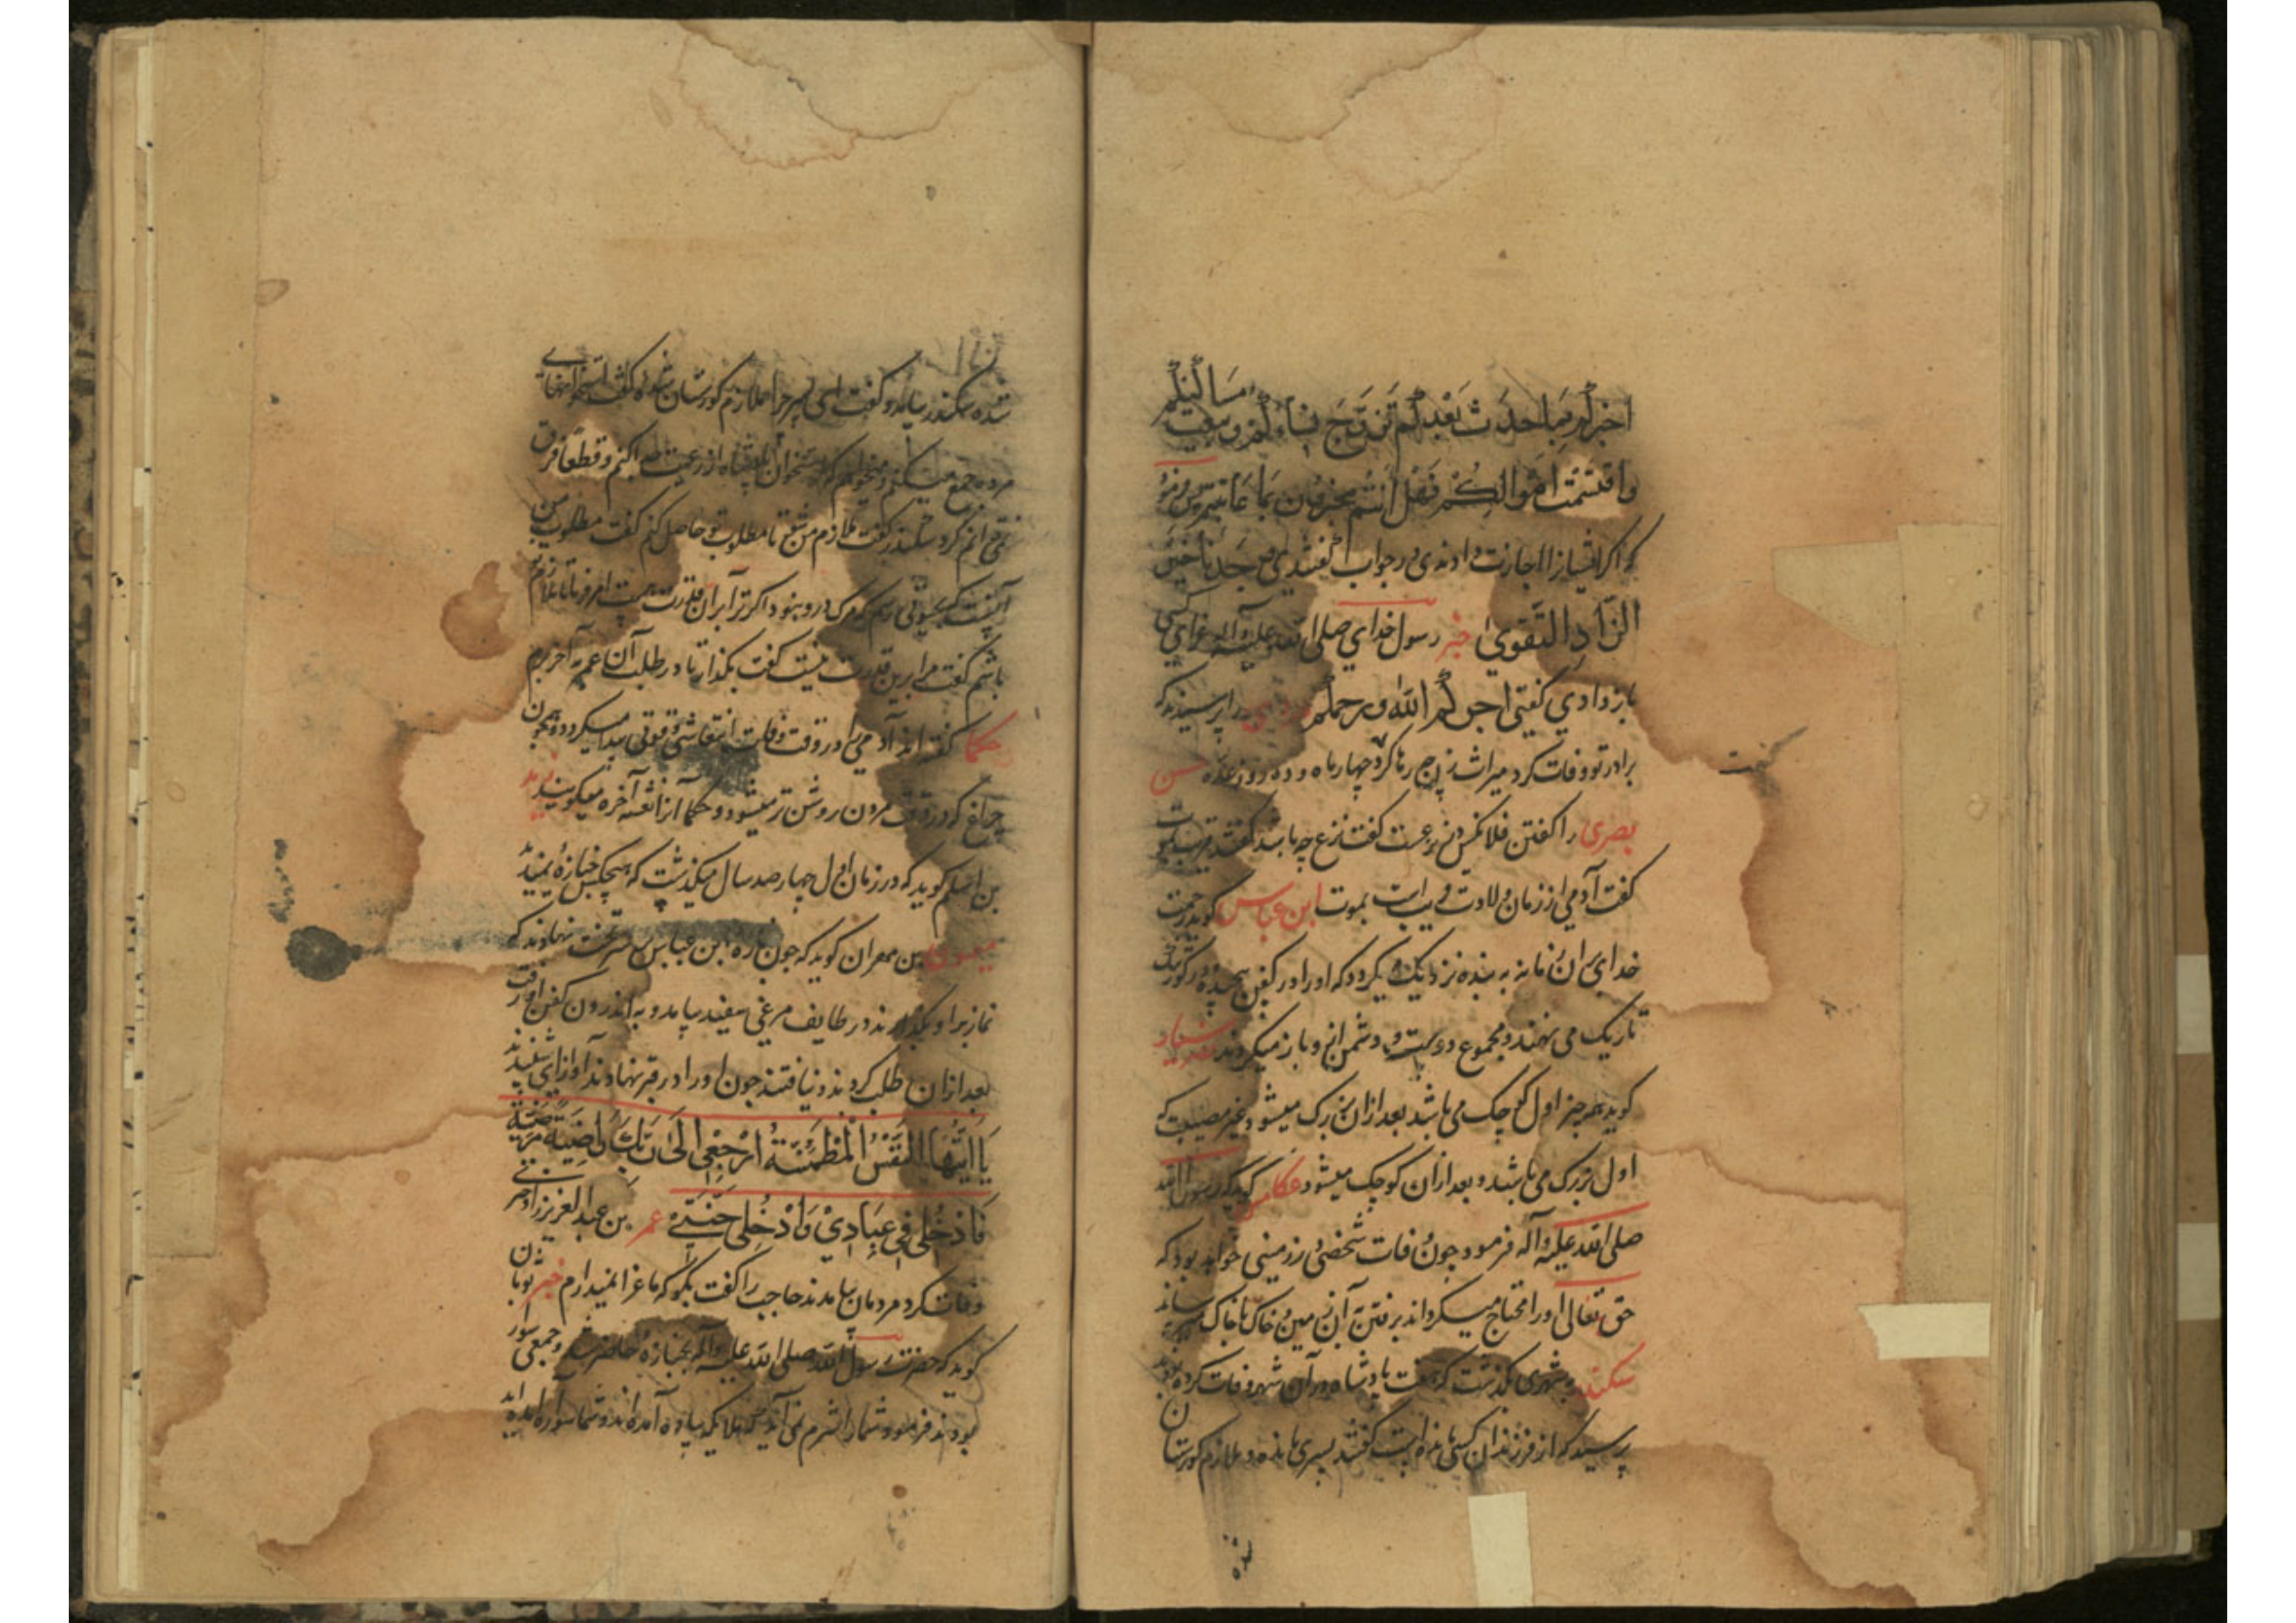 اخبرکم بما حدث بعدکم تزوج نساءکم و سکنت مساکنکم
واقتسمت اموالکم فهل انتم مخبرون بما عاینتم پس فرمود
که اگر ایشانرا اجازت دادندی در جواب گفتندی وجدنا خیر
الزاد التقوی خبر رسول خدای صلی الله علیه و آله عزای کسی
باز دادی گفتی اجرکم الله و رحمکم را پرسیدند که
برادر تو وفات کرد میراث زن چه رها کرد چهار ماه و ده روز عده حسن
بصری را گفتن فلانکس در نزعست گفت نزع چه باشد گفتند قریبست بموت
گفت آدمی از زمان ولادت قریب است بموت ابن عباس گوید رحمت
خدای در آن زمان به بنده نزدیک میگردد که او را در کفن پیچیده در گور تنک
تاریک می نهند و مجموع دوست و دشمن از و باز میگردند
گوید هر چیز اول کوچک می باشد بعد از ان بزرگ میشود بغیر مصیبت که
اول بزرگ می باشد و بعد از ان کوچک میشود عکامس گوید که رسول الله
صلی الله علیه و آله فرمود چون وفات شخصی در زمینی خواهد بود که
حق تعالی او را محتاج میگرداند برفتن آن زمین و خاک با خاک میرساند
سکندر بشهری بگذشت که هفت پادشاه در آن شهر وفات کرده بودند
پرسید که از فرزندان کسی مانده است گفتند پسری مانده و ملازم گورستان
شده
شده سکندر بیامد و گفت ای پسر چرا ملازم گورستان شدهٔ گفت استخوانهای
مرده جمع میکنم و میخواهم که استخوان پادشاه از رعیت جدا کنم و قطعا فرق
نمی توانم کرد سکندر گفت ملازم من شو تا مطلوب تو حاصل کنم گفت مطلوب من
آنست که بحیوتی رسم که مرک در و نبود اگر ترا بران قدرت هست امر فرما تا ملازم
باشم گفت مرا برین قدرت نیست گفت بگذار تا در طلب آن عمر به آخر برم
حکما گفته اند آدمی را در وقت وفات انتعاشی و قوتی پیدا میگردد و همچون
چراغ که در وقت مردن روشن تر میشود و حکما آنرا نعشه آخره میگویند زید
بن اسلم گوید که در زمان اول چهار صد سال میگذشت که هیچکس جنازهٔ نمیدید
میمون بن مهران گوید که چون جنازه ابن عباس بر سر تخت نهادند که
نماز بر او بگذارند در طایف مرغی سفید بیامد و به اندرون کفن او رفت
بعد از ان طلب کردند و نیافتند چون او را در قبر نهادند آوازی شنیدند
یا ایتها النفس المطمئنة ارجعی الی ربک راضیة مرضیة
فادخلی فی عبادی وادخلی جنتی عمر بن عبد العزیز را پسری
وفات کرد مردمان بیامدند حاجب را گفت بگو که ما عزا نمیداریم خبر ثوبان
گوید که حضرت رسول الله صلی الله علیه و آله بجنازهٔ حاضر شد و جمعی سوار
بودند فرمود شما را شرم نمی آید که ملایکه پیاده آمده اند و شما سواره آمده اید